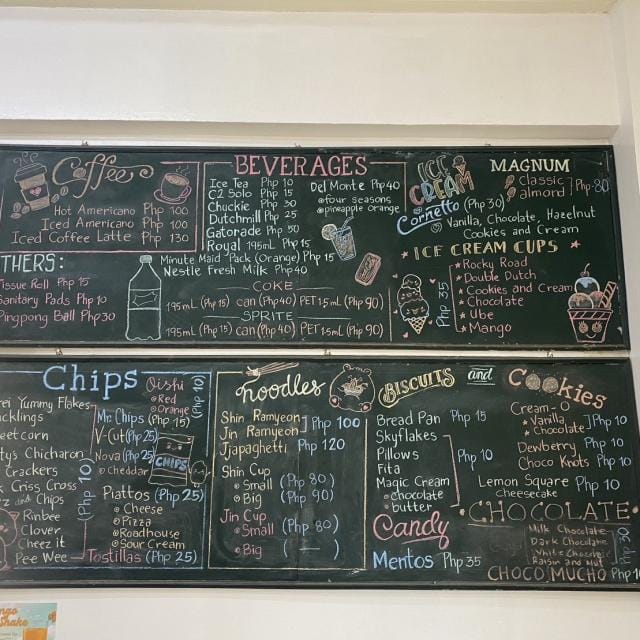 Coffee
Hot Americano Php 100
Iced Americano Php 100
Iced Coffee Latte Php 130
THERS:
Tissue Roll Php 15
Sanitary Pads Php 10
Pingpong Ball Php 30
BEVERAGES
Ice Tea Php 10
C2 Solo Php 15
Chuckie Php 30
Dutchmill Php 25
Gatorade Php 50
Royal 195mL Php 15
Minute Maid Pack (Orange) Php 15
Nestle Fresh Milk Php 40
Del Monte Php 40
four seasons
pineapple orange
COKE
195mL (Php 15) can (Php 40) PET 1.5mL (Php 90)
SPRITE
195mL (Php 15) can (Php 40) PET 1.5mL (Php 90)
ICE CREAM
Cornetto (Php 30)
Vanilla, Chocolate, Hazelnut
Cookies and Cream
MAGNUM
Classic
almond Php 80
ICE CREAM CUPS
Php 35
Rocky Road
Double Dutch
Cookies and Cream
Chocolate
Ube
Mango
Chips
rei Yummy Flakes
cklings
eetcorn
tys Chicharon
Crackers
Criss Cross
tz and Chips
Rinbee
Clover
Cheez it
Pee Wee
(Php 10)
Oishi
Red
Orange
(Php 10)
Mr. Chips (Php 15)
V-Cut (Php 25)
Nova (Php 25)
Cheddar
CHIPS
Piattos (Php 25)
Cheese
Pizza
Roadhouse
Sour Cream
Tostillas (Php 25)
noodles
Shin Ramyeon
Jin Ramyeon Php 100
Jjapaghetti Php 120
Shin Cup
Small (Php 80)
Big (Php 90)
Jin Cup
Small (Php 80)
Big ( — )
BISCUITS and Cookies
Bread Pan Php 15
Skyflakes
Pillows
Fita
Magic Cream
chocolate
butter
Php 10
Candy
Mentos Php 35
Cream-O
Vanilla
Chocolate Php 10
Dewberry Php 10
Choco Knots Php 10
Lemon Square Php 10
cheesecake
CHOCOLATE
Milk Chocolate
Dark Chocolate
White Chocolate
Raisin and Nut
Php 30
CHOCO MUCHO Php 1
ngo
Shake